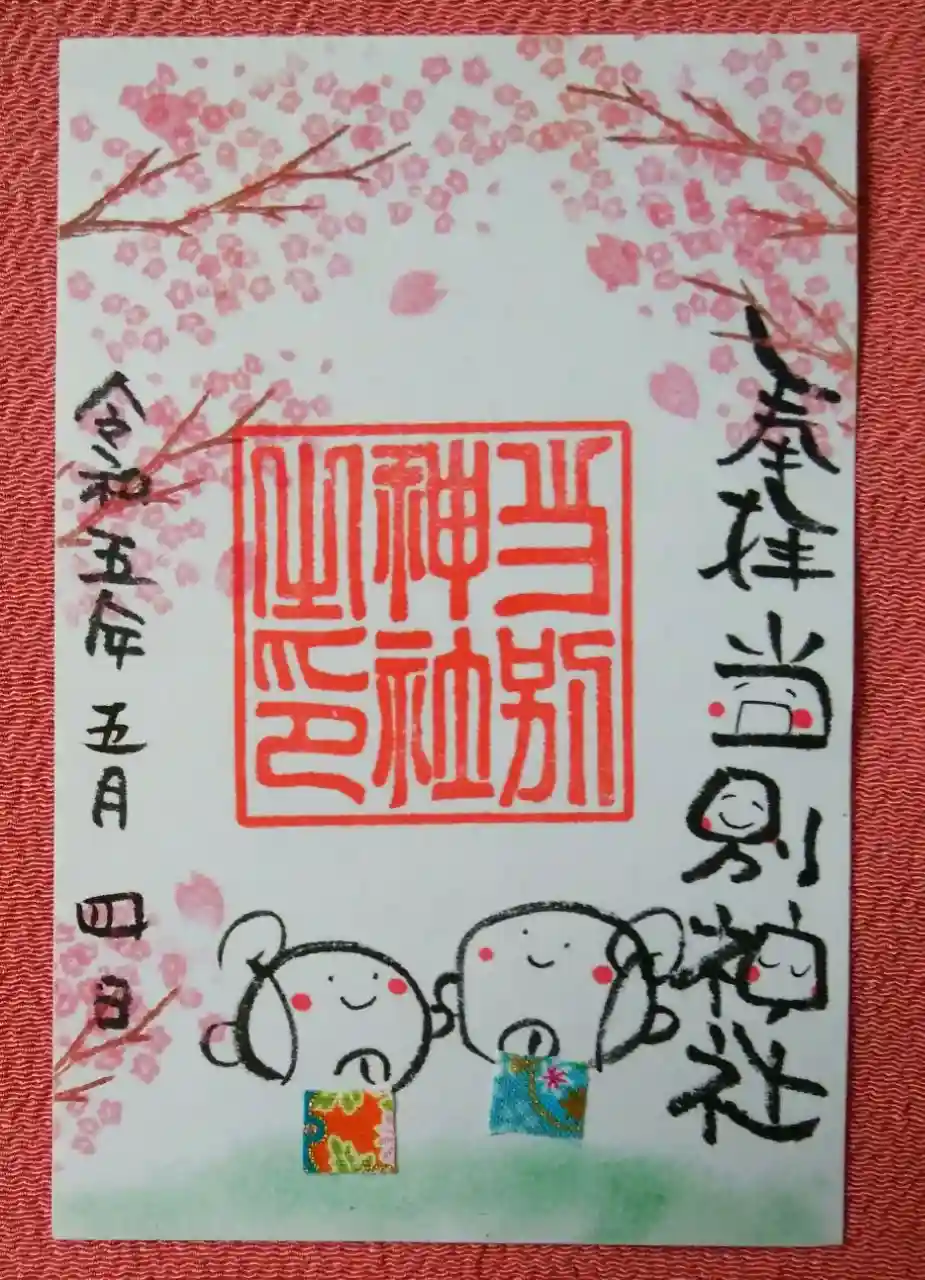 奉拝 当別神社
当別
神社
之印
令和五年 五月 四日